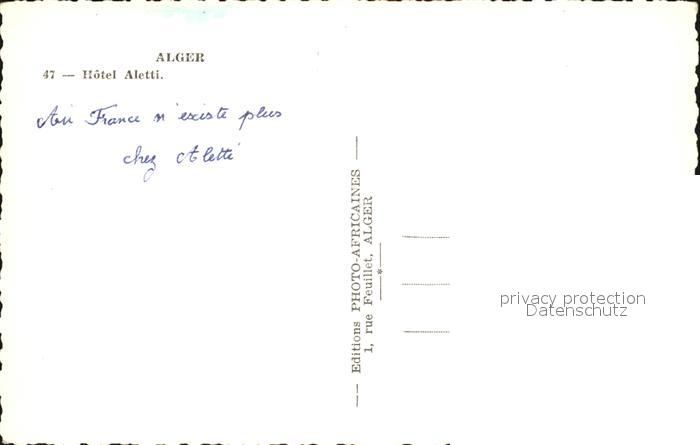 ALGER
47 — Hôtel Aletti.
Air France n'existe plus
chez Aletti
Editions PHOTO-AFRICAINES
1, rue Feuillet, ALGER
privacy protection
Datenschutz